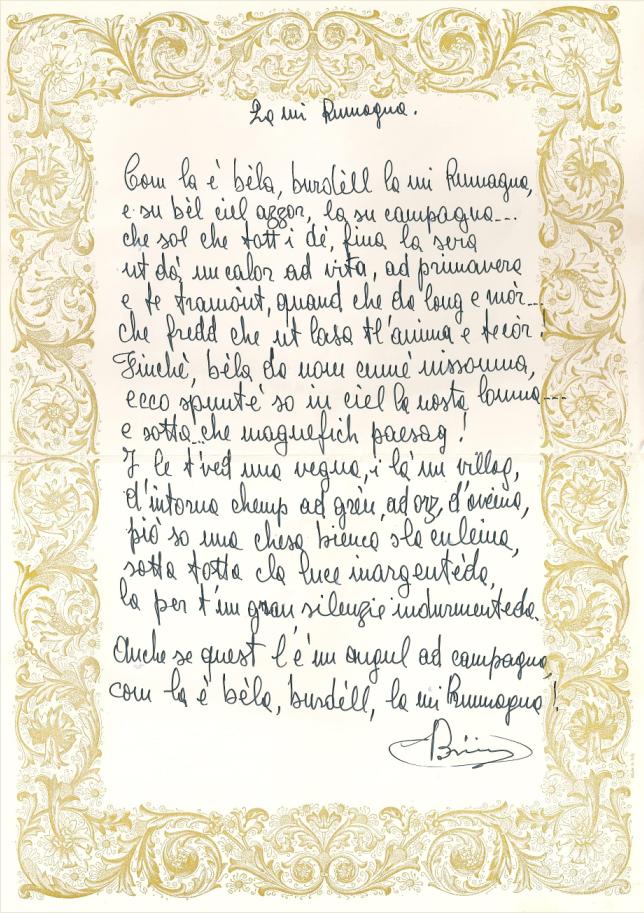 La mi Rumagna.
Com la è bèla, burdèll la mi Rumagna,
e su bèl ciel azzor, la su campagna...
che sol che tott i dè, fina la sera
ut dà, un calor ad vita, ad primavera
e te tramònt, quand che da long e mòr...
che fredd che ut lasa tl'anima e te còr!
Finchè, bèla da nom cumè nissouna,
ecco spunté so in ciel la nosta louna...
e sotta... che magnefich paesag!
I le t'ved una vegna, i là un villag,
d'intorna chemp ad grèn, ad orz, d'aveina,
piò so una chesa bienca sla culeina,
sotta totta cla luce inargentèda,
la per t'un gran silenzie indurmenteda.
Anche se quest l'è un angul ad campagna,
com la è bèla, burdèll, la mi Rumagna!